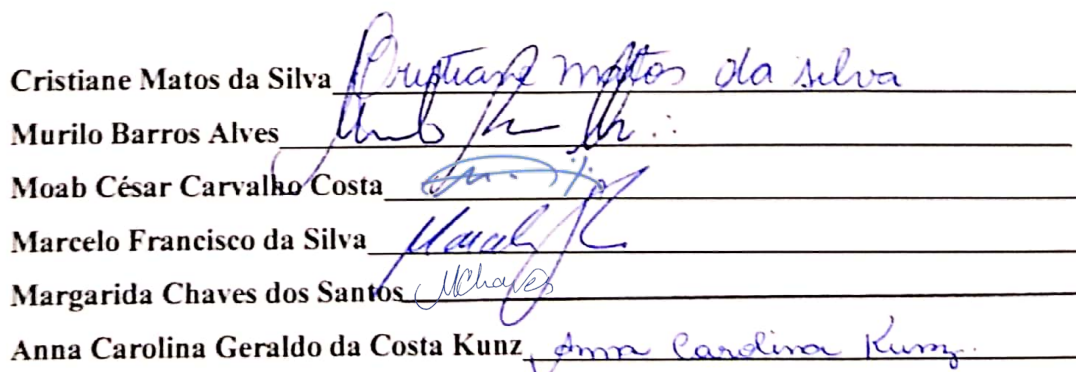 Cristiane Matos da Silva Cristiane matos da silva
Murilo Barros Alves
Moab César Carvalho Costa
Marcelo Francisco da Silva
Margarida Chaves dos Santos MChaves
Anna Carolina Geraldo da Costa Kunz Anna Carolina Kunz